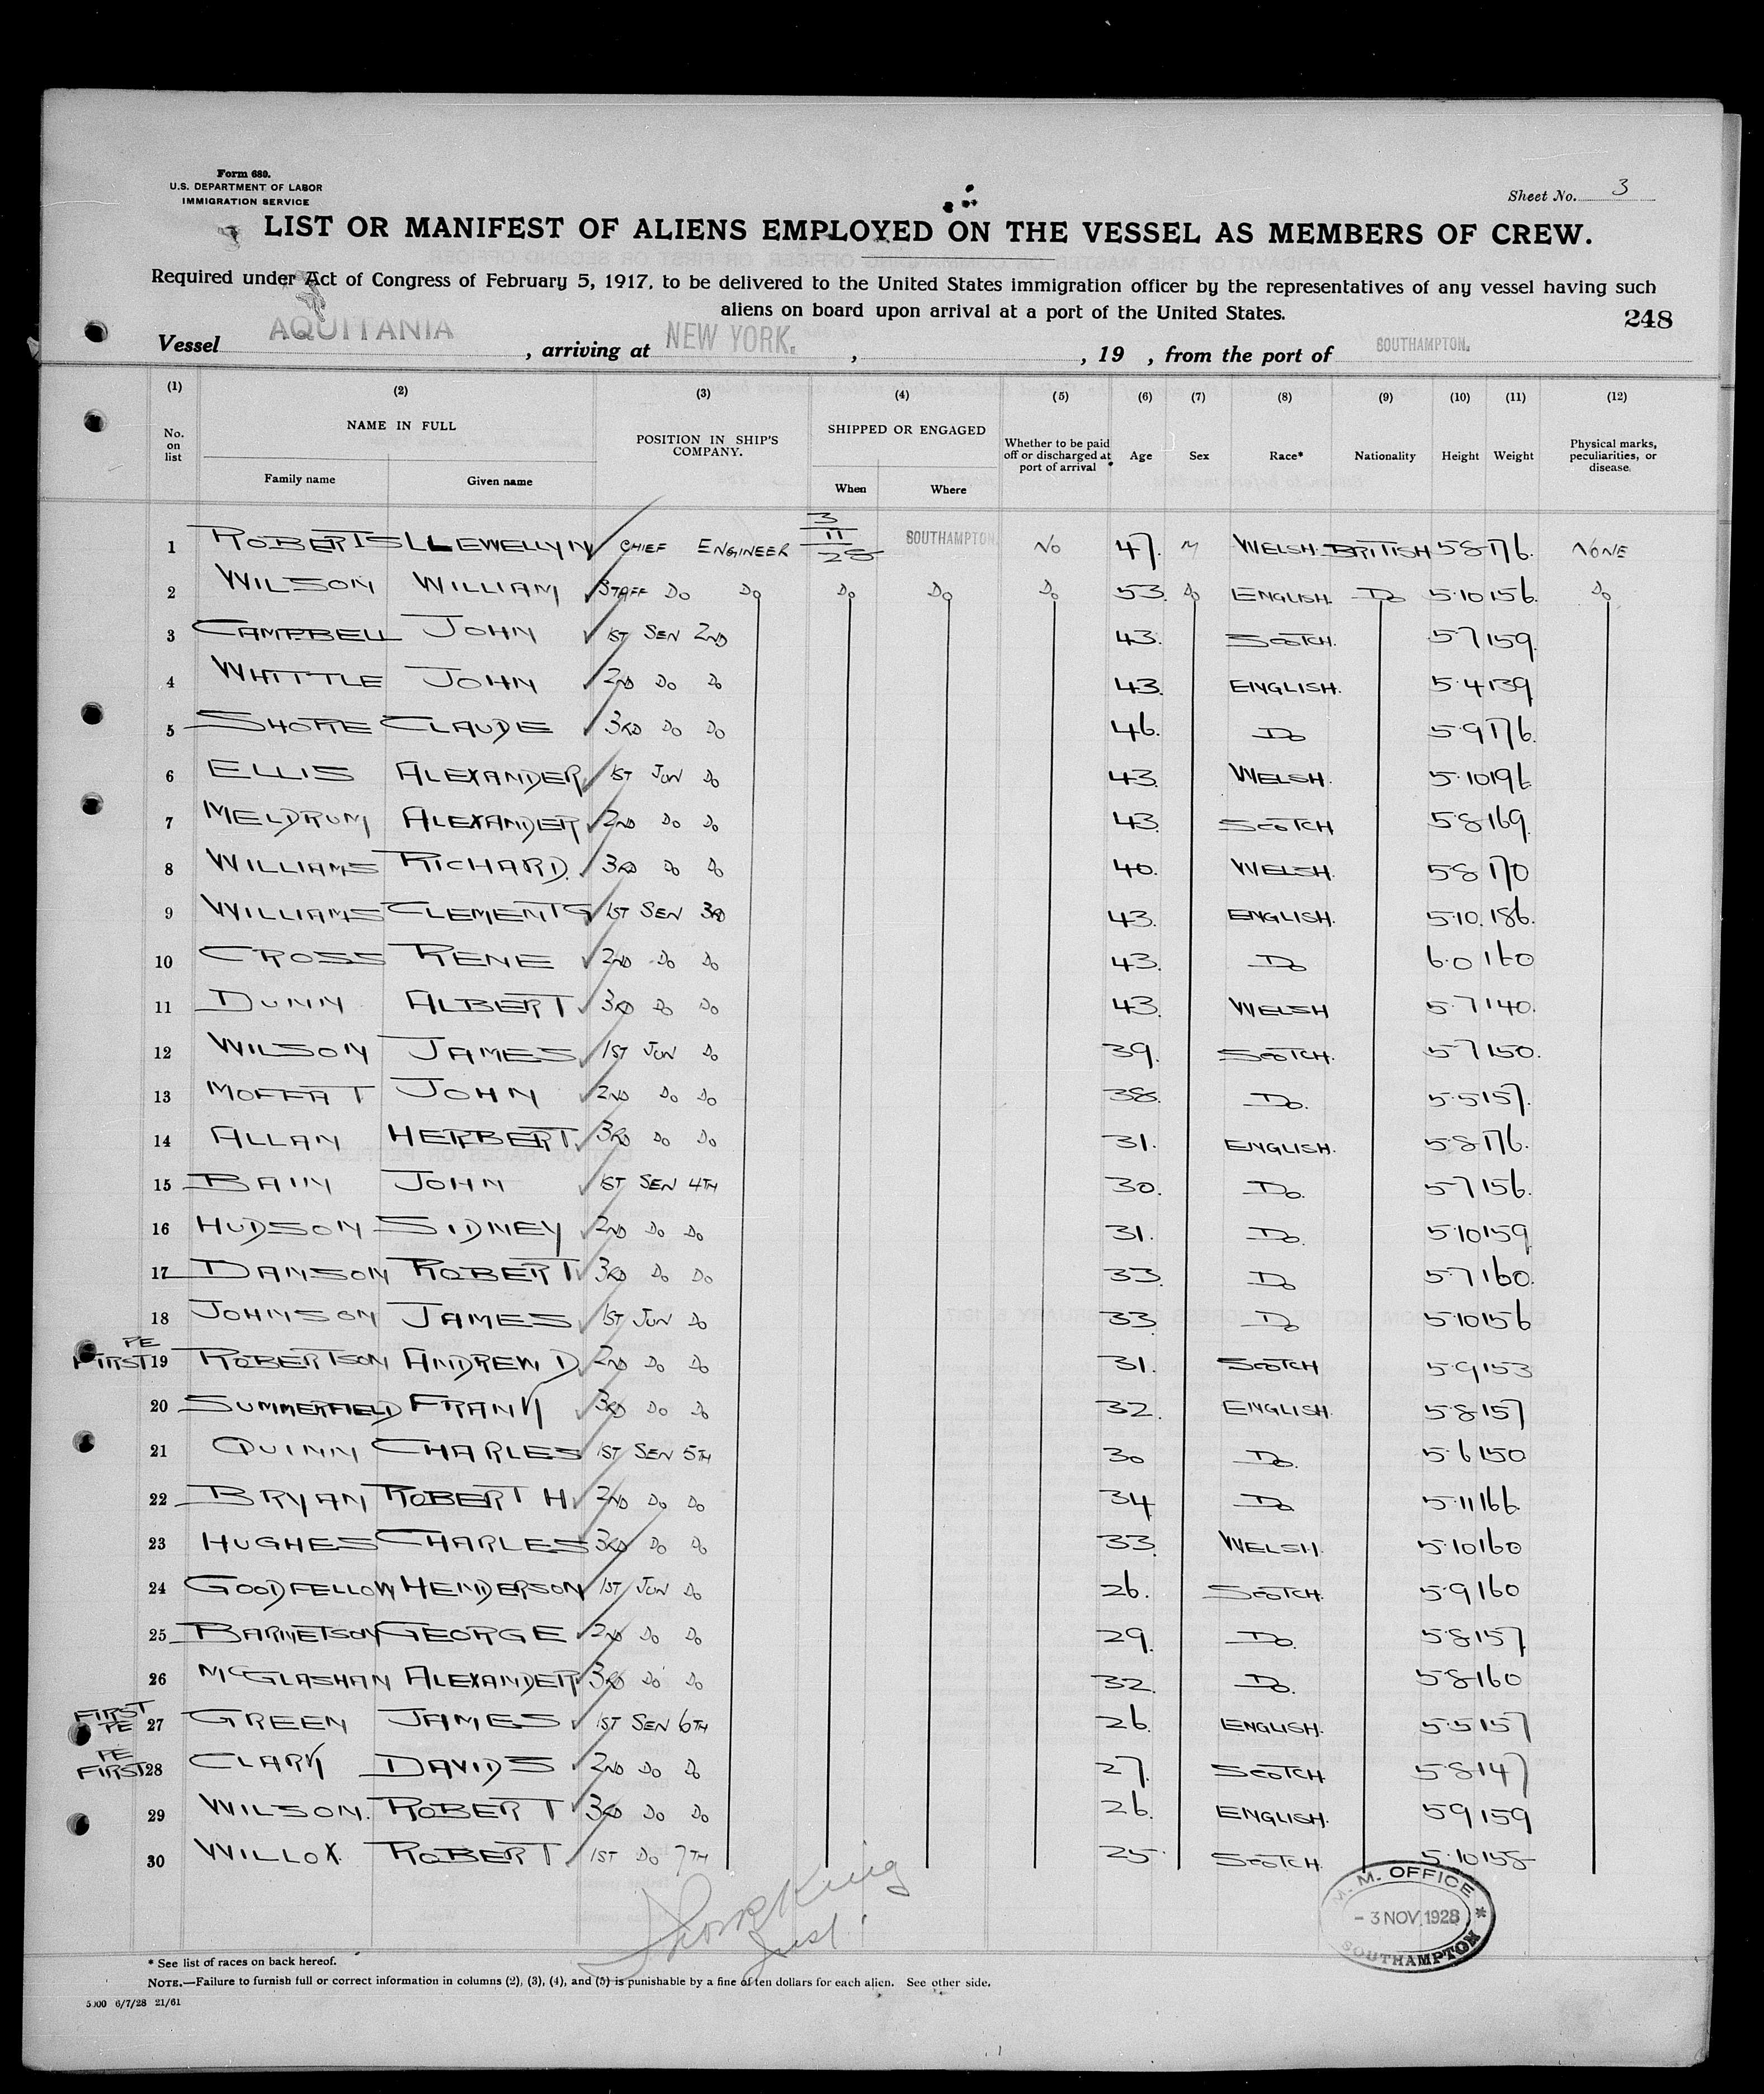 Form 680.
U.S. DEPARTMENT OF LABOR
IMMIGRATION SERVICE
Sheet No. 3
LIST OR MANIFEST OF ALIENS EMPLOYED ON THE VESSEL AS MEMBERS OF CREW.
Required under Act of Congress of February 5, 1917, to be delivered to the United States immigration officer by the representatives of any vessel having such
aliens on board upon arrival at a port of the United States.
248
Vessel AQUITANIA, arriving at NEW YORK. , , 19 , from the port of SOUTHAMPTON.
(1) (2) (3) (4) (5) (6) (7) (8) (9) (10) (11) (12)
No. on list NAME IN FULL Family name Given name POSITION IN SHIP'S COMPANY. SHIPPED OR ENGAGED When Where Whether to be paid off or discharged at port of arrival Age Sex Race* Nationality Height Weight Physical marks, peculiarities, or disease.
1 ROBERTS LLEWELLYN CHIEF ENGINEER 3/11/28 SOUTHAMPTON. NO 47. M WELSH. BRITISH 5·8 176. NONE
2 WILSON WILLIAM STAFF DO DO DO DO DO 53. DO ENGLISH. DO 5·10 156. DO
3 CAMPBELL JOHN 1ST SEN 2ND 43. SCOTCH. 5·7 159.
4 WHITTLE JOHN 2ND DO DO 43. ENGLISH. 5·4 139
5 SHORE CLAUDE 3RD DO DO 46. DO 5·9 176.
6 ELLIS ALEXANDER 1ST JUN DO 43. WELSH. 5·10 196.
7 MELDRUM ALEXANDER 2ND DO DO 43. SCOTCH 5·8 169.
8 WILLIAMS RICHARD. 3RD DO DO 40. WELSH. 5·8 170
9 WILLIAMS CLEMENTS 1ST SEN 3RD 43. ENGLISH. 5·10. 186.
10 CROSS RENE 2ND DO DO 43. DO 6·0 160
11 DUNN ALBERT 3RD DO DO 43. WELSH 5·7 140.
12 WILSON JAMES 1ST JUN DO 39. SCOTCH. 5·7 150.
13 MOFFAT JOHN 2ND DO DO 38. DO. 5·5 157.
14 ALLAN HERBERT. 3RD DO DO 31. ENGLISH. 5·8 176.
15 BAIN JOHN 1ST SEN 4TH 30. DO. 5·7 156.
16 HUDSON SIDNEY 2ND DO DO 31. DO. 5·10 159
17 DANSON ROBERT 3RD DO DO 33. DO 5·7 160.
18 JOHNSON JAMES 1ST JUN DO 33. DO 5·10 156
PE
FIRST 19 ROBERTSON ANDREW D. 2ND DO DO 31. SCOTCH 5·9 153
20 SUMMERFIELD FRANK 3RD DO DO 32. ENGLISH. 5·8 157
21 QUINN CHARLES 1ST SEN 5TH 30 DO. 5·6 150
22 BRYAN ROBERT H. 2ND DO DO 34 DO 5·11 166.
23 HUGHES CHARLES 3RD DO DO 33. WELSH. 5·10 160
24 GOODFELLOW HENDERSON 1ST JUN DO 26. SCOTCH. 5·9 160
25 BARNETSON GEORGE 2ND DO DO 29. DO. 5·8 157
26 MCGLASHAN ALEXANDER 3RD DO DO 32. DO. 5·8 160
FIRST
PE 27 GREEN JAMES 1ST SEN 6TH 26. ENGLISH. 5·5 157
PE
FIRST 28 CLARK DAVID S 2ND DO DO 27. SCOTCH. 5·8 147
29 WILSON. ROBERT 3RD DO DO 26. ENGLISH. 5·9 159
30 WILLOX. ROBERT 1ST DO 7TH 25. SCOTCH. 5·10 158
M. M. OFFICE
- 3 NOV. 1928 *
SOUTHAMPTON
* See list of races on back hereof.
NOTE.—Failure to furnish full or correct information in columns (2), (3), (4), and (5) is punishable by a fine of ten dollars for each alien. See other side.
5000 6/7/28 21/61